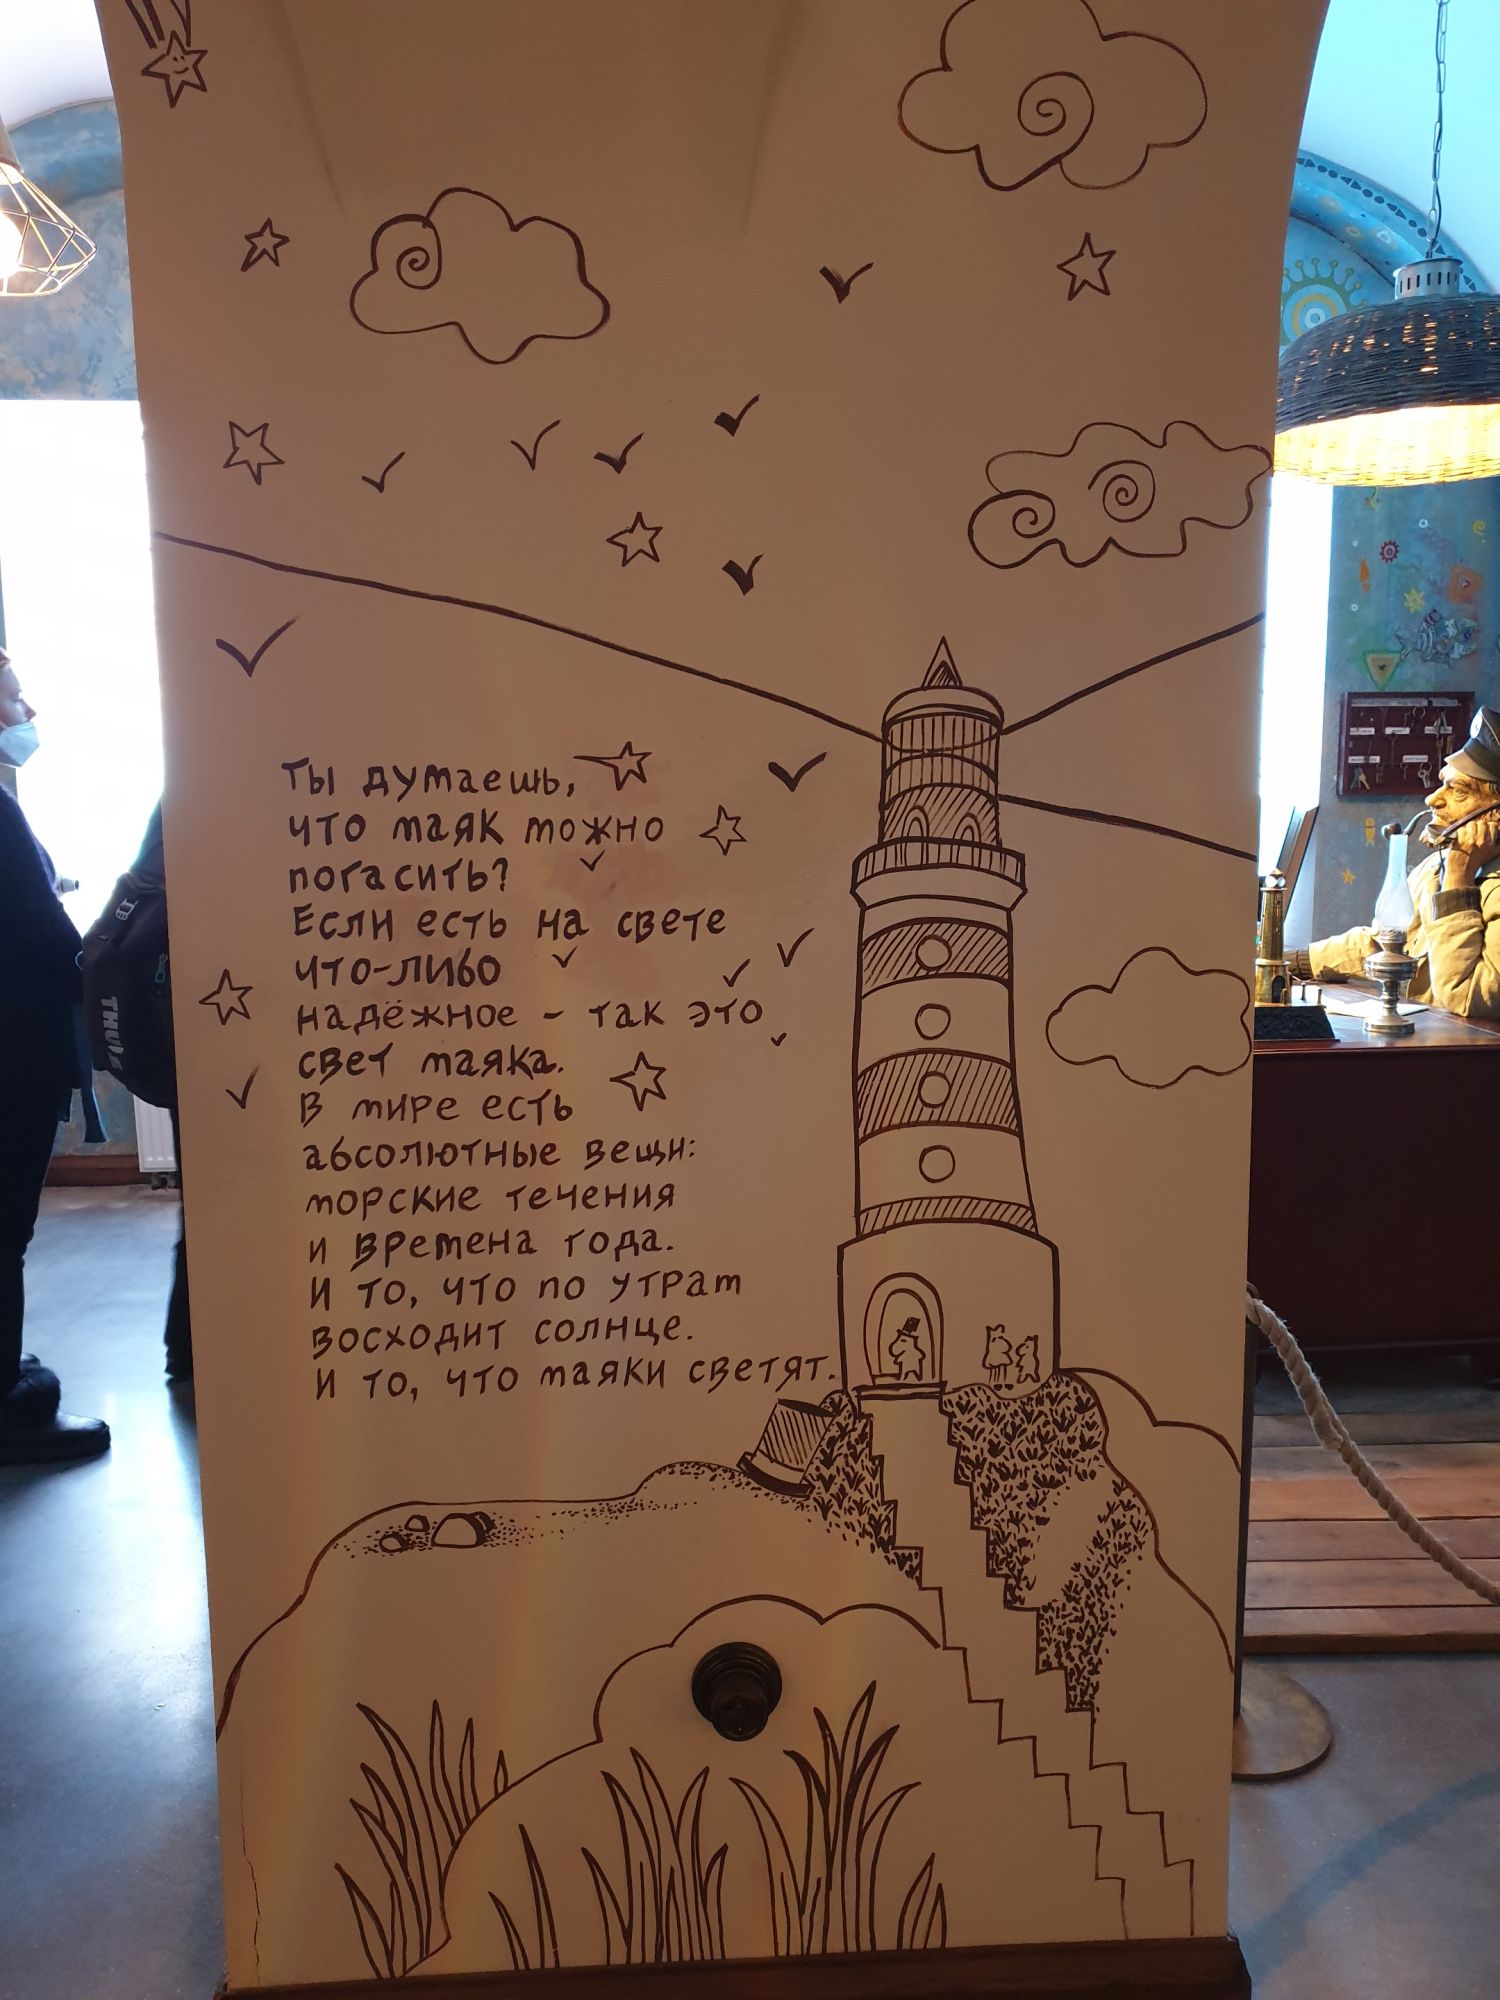 Ты думаешь,
что маяк можно
погасить?
Если есть на свете
что-либо
надёжное - так это
свет маяка.
В мире есть
абсолютные вещи:
морские течения
и времена года.
И то, что по утрам
восходит солнце.
И то, что маяки светят.
THULE